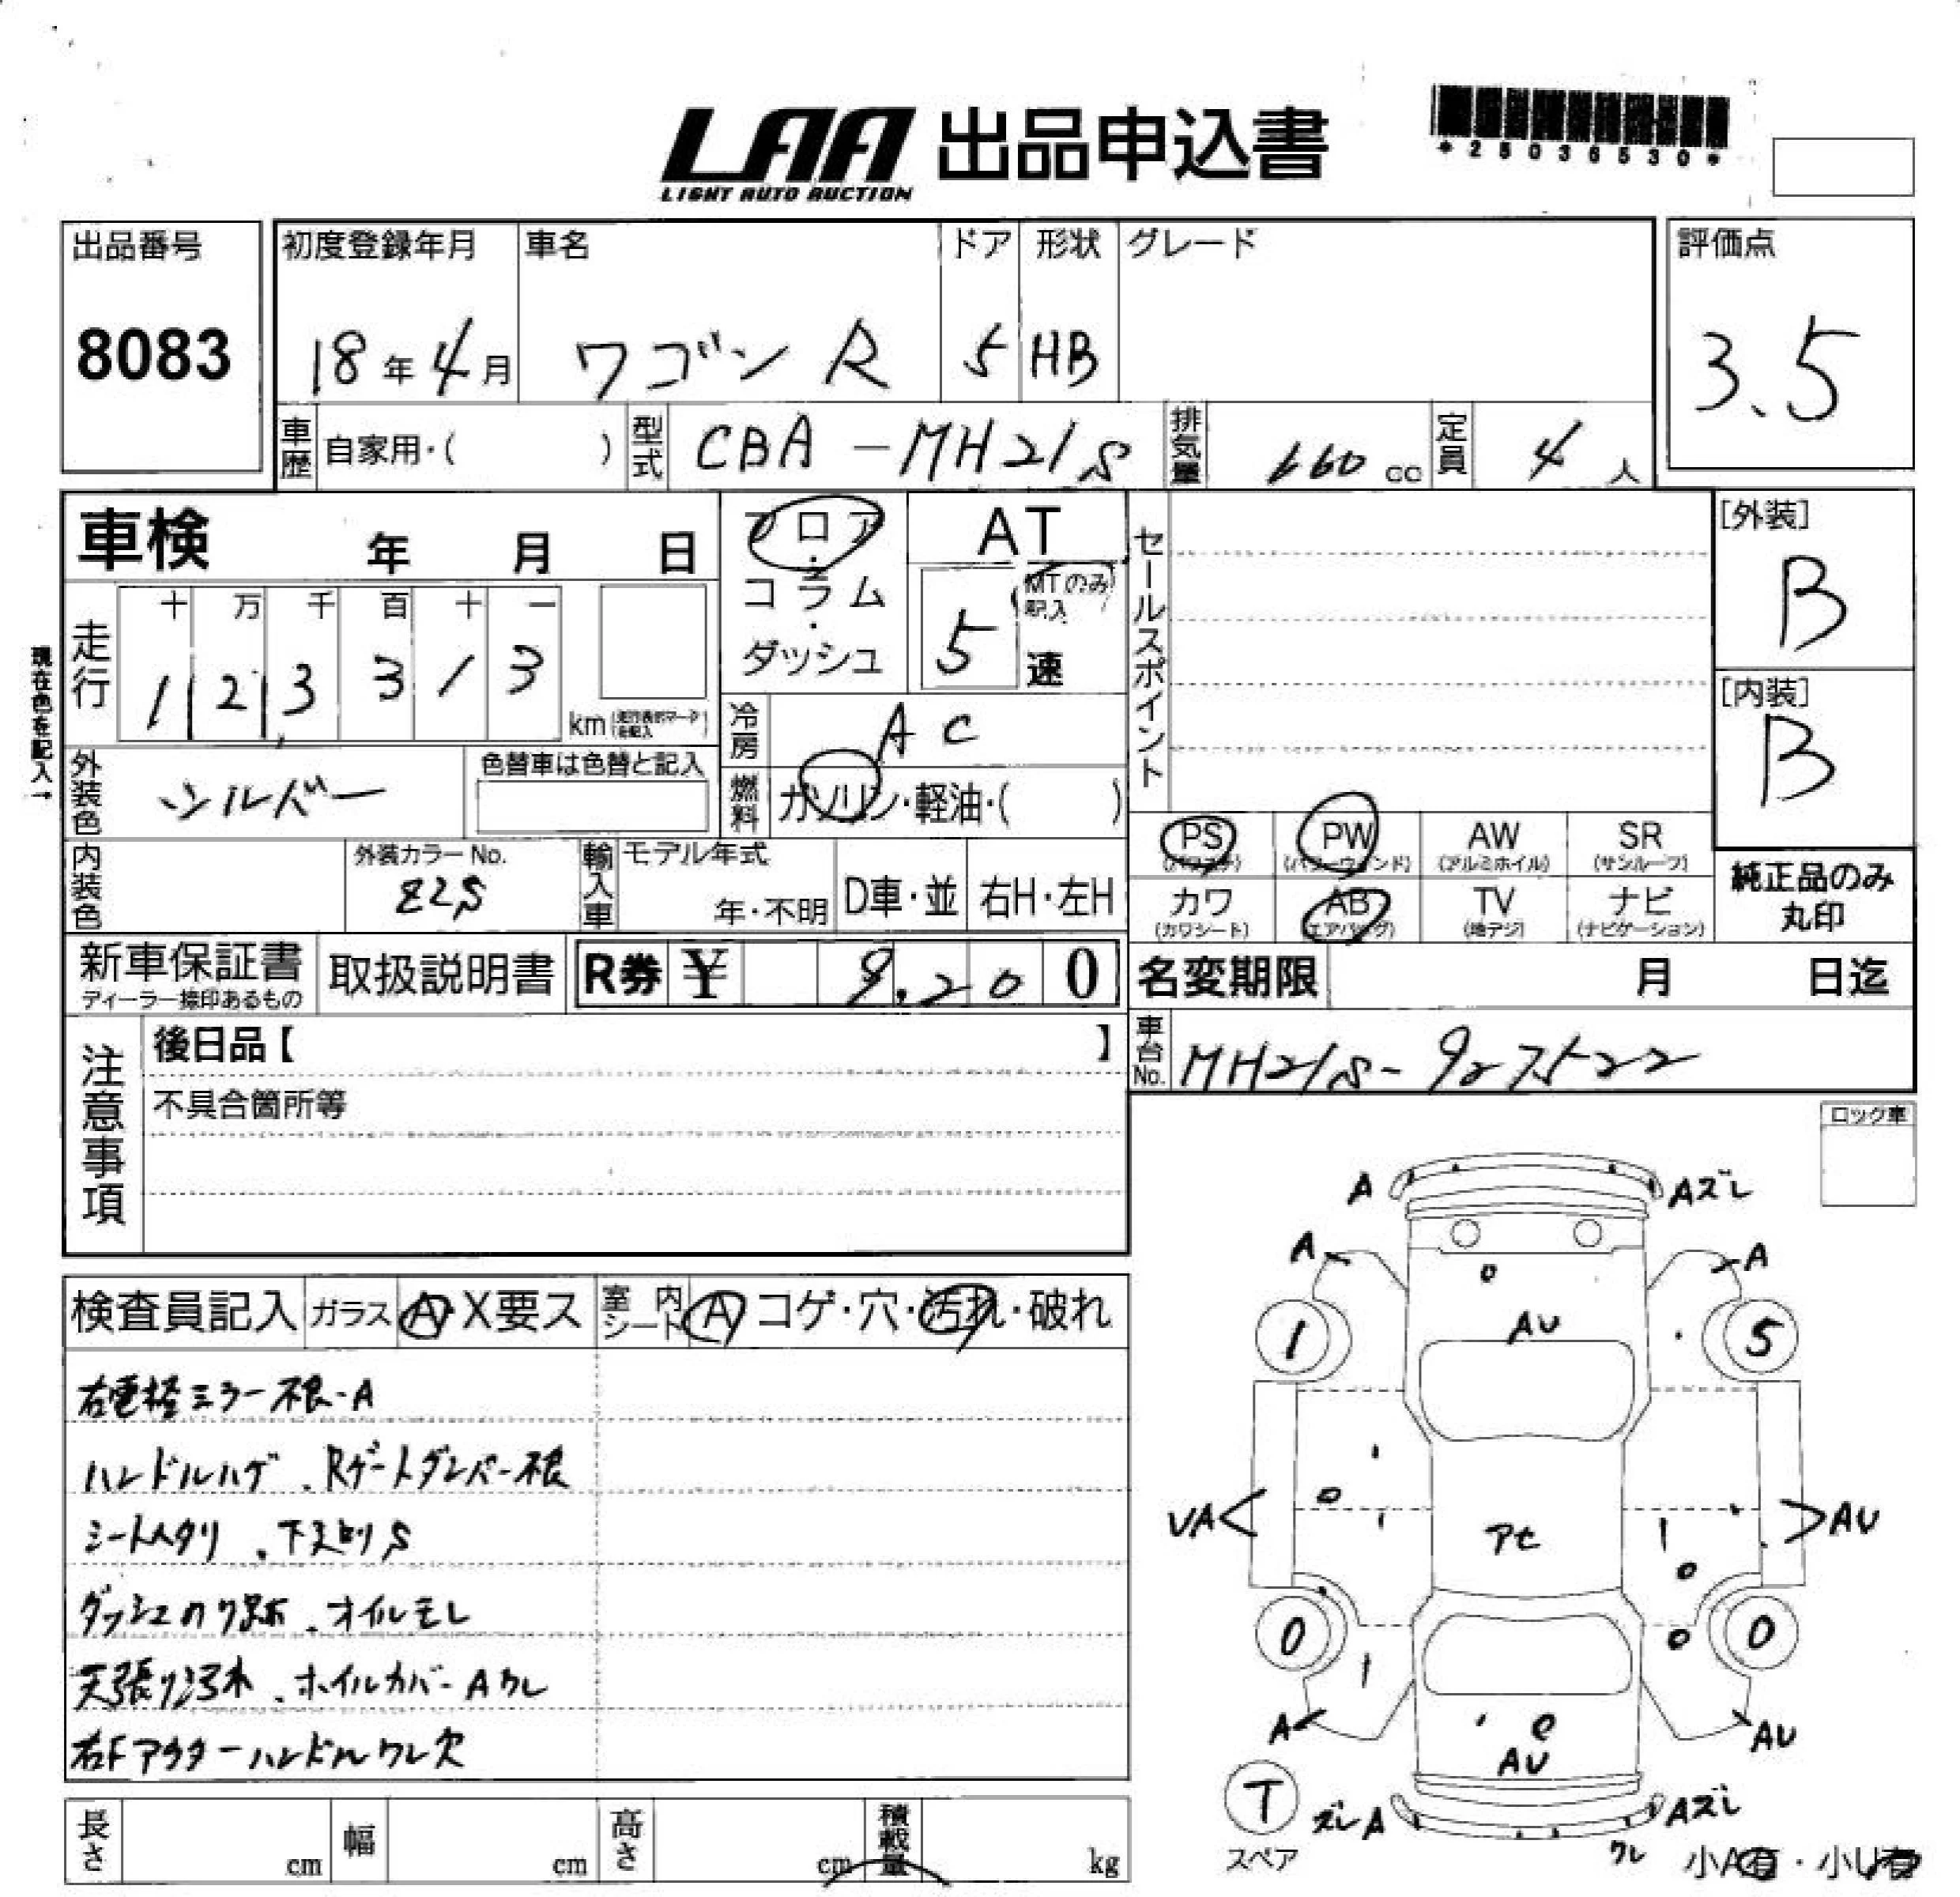 LAA 出品申込書
LIGHT AUTO AUCTION
出品番号
8083
初度登録年月
18年4月
車名
ワゴン R
ドア
5
形状
HB
グレード
評価点
3.5
車歴 自家用・( )
型式 CBA-MH21S
排気量 660 cc
定員 4 人
車検 年 月 日
フロア・コラム・ダッシュ
AT
5 速
MTのみ記入
セールスポイント
[外装]
B
[内装]
B
現在色を記入→
走行
十 万 千 百 十 一
1 2 3, 3 1 3 km
冷房 AC
外装色 シルバー
色替車は色替と記入
燃料 ガソリン・軽油・( )
PS (パワステ)
PW (パワーウィンド)
AW (アルミホイル)
SR (サンルーフ)
カワ (カワシート)
AB (エアバッグ)
TV (地デジ)
ナビ (ナビゲーション)
純正品のみ
丸印
内装色
外装カラーNo.
Z2S
輸入車
モデル年式
年・不明
D車・並
右H・左H
新車保証書
ディーラー捺印あるもの
取扱説明書
R券 ¥ 9,200
名変期限 月 日迄
車台No. MH21S-927522
注意事項
後日品【 】
不具合箇所等
ロック車
検査員記入
ガラス A・X要ス
室内シート A コゲ・穴・汚れ・破れ
右電格ミラー不良・A
ハンドルハゲ、Rゲートダンパー不良
シートヘタリ、下廻りS
ダッシュノリ跡、オイルモレ
ホイルカバーAワレ
右Fアウターハンドルワレ欠
A
Aズレ
A
A
1
AU
5
UA
アセ
AU
0
0
A
AU
AU
T
スペア
ズレA
Aズレ
ワレ
小A有・小U有
長さ cm
幅 cm
高さ cm
積載量 kg